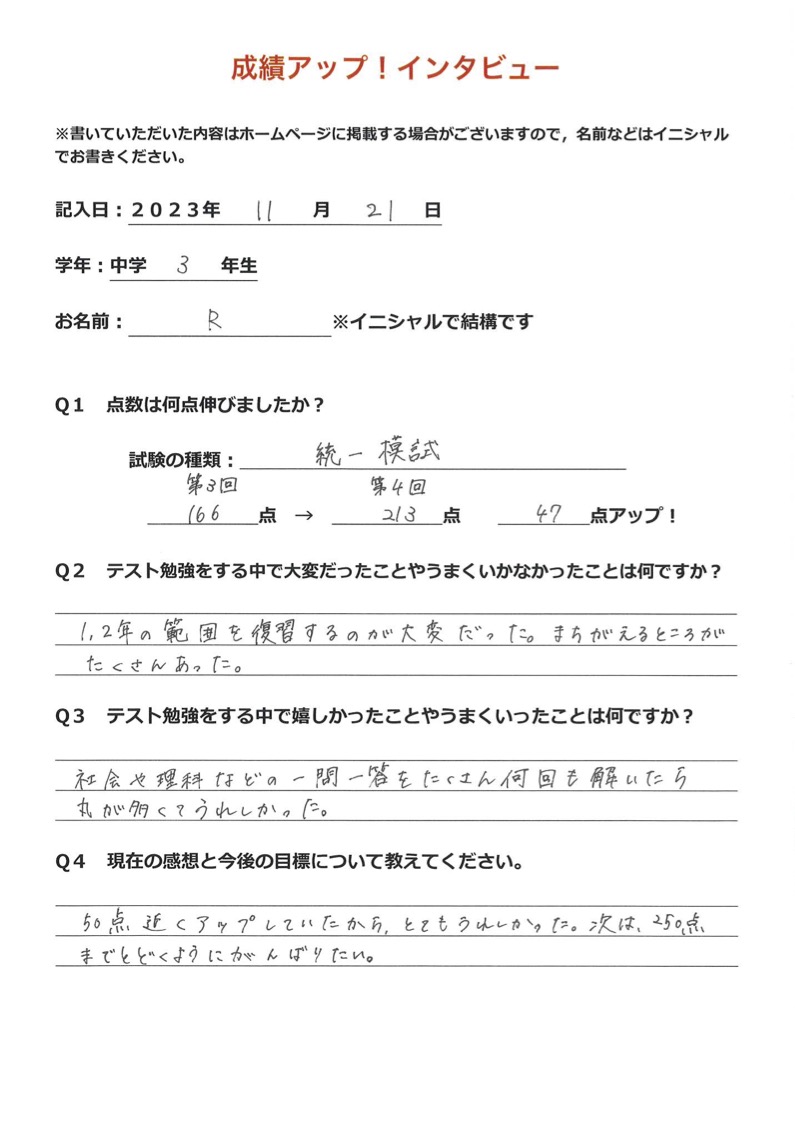 成績アップ！インタビュー
※書いていただいた内容はホームページに掲載する場合がございますので，名前などはイニシャル
でお書きください。
記入日：２０２３年 11 月 21 日
学年：中学 3 年生
お名前： R ※イニシャルで結構です
Ｑ１ 点数は何点伸びましたか？
試験の種類： 統一模試
第3回 第4回
166 点 → 213 点 47 点アップ！
Ｑ２ テスト勉強をする中で大変だったことやうまくいかなかったことは何ですか？
1,2年の範囲を復習するのが大変だった。まちがえるところが
たくさんあった。
Ｑ３ テスト勉強をする中で嬉しかったことやうまくいったことは何ですか？
社会や理科などの一問一答をたくさん何回も解いたら
丸が多くてうれしかった。
Ｑ４ 現在の感想と今後の目標について教えてください。
50点近くアップしていたから，とてもうれしかった。次は、250点
までとどくようにがんばりたい。